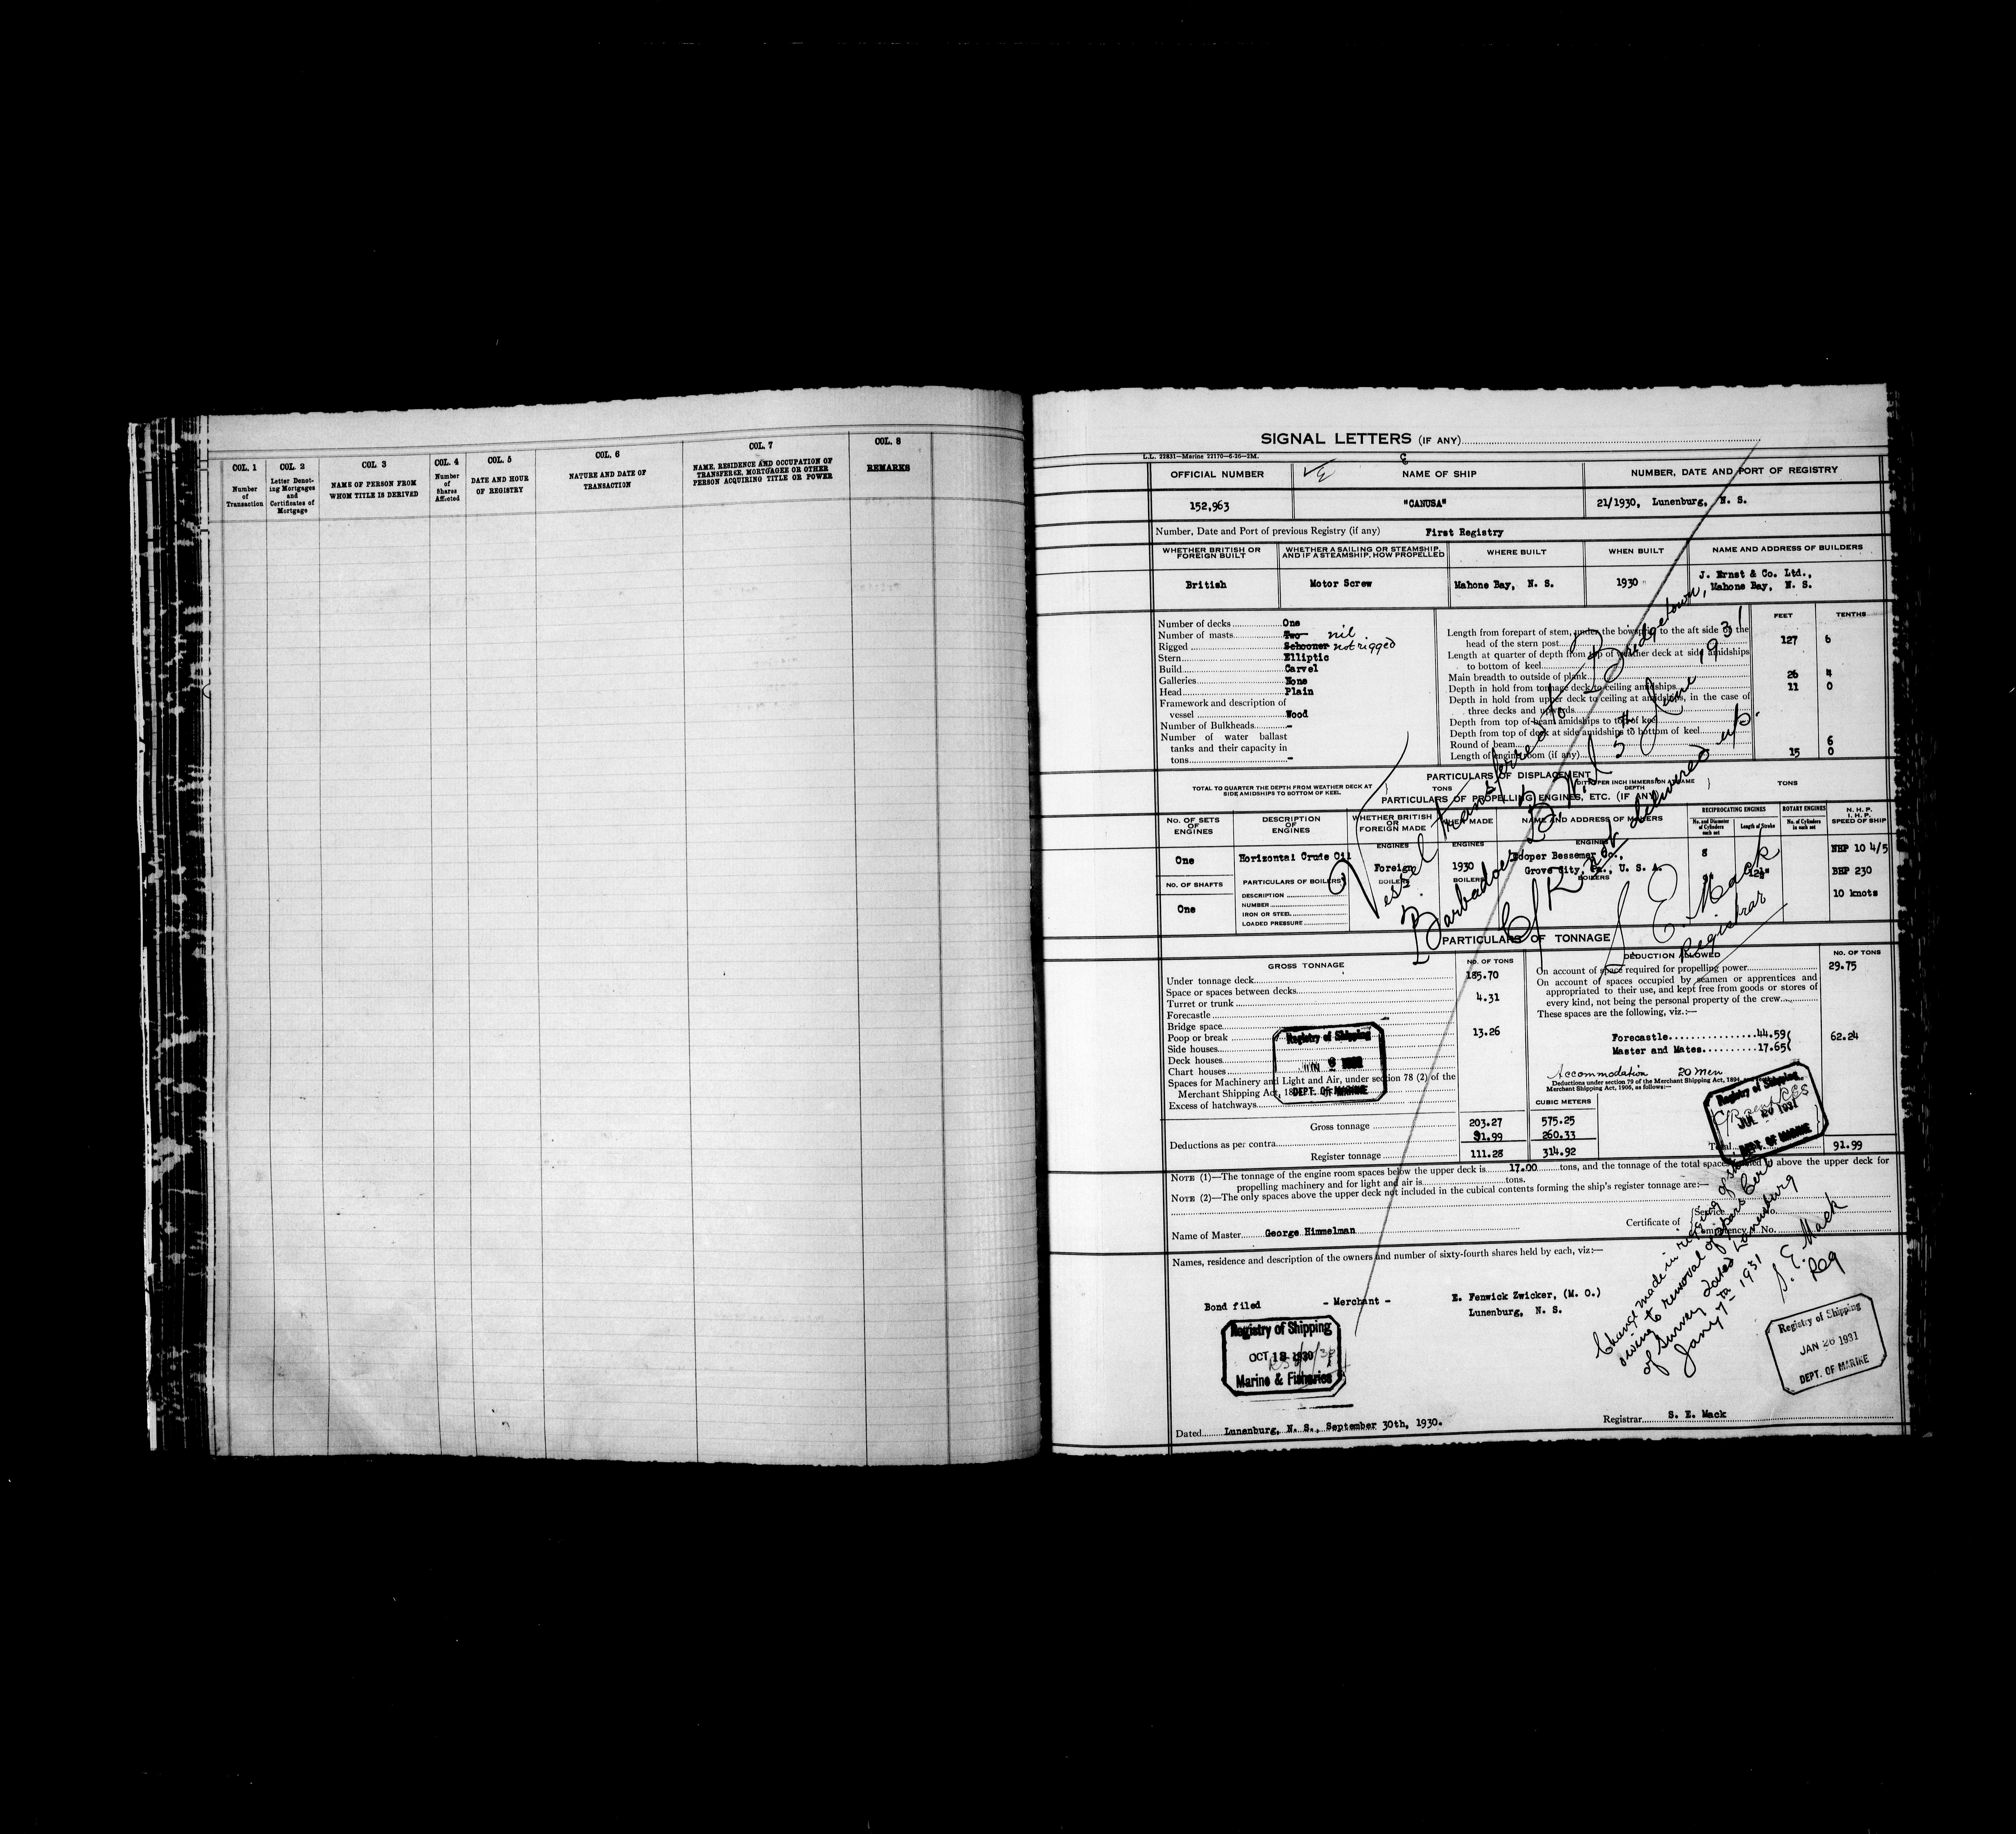 COL. 1
Number
of
Transaction
COL. 2
Letter Denot-
ing Mortgages
and
Certificates of
Mortgage
COL 3
NAME OF PERSON FROM
WHOM TITLE IS DERIVED
COL. 4
Number
of
Shares
Affected
COL. 5
DATE AND HOUR
OF REGISTRY
COL. 6
NATURE AND DATE OF
TRANSACTION
COL. 7
NAME, RESIDENCE AND OCCUPATION OF
TRANSFEREE, MORTGAGEE OR OTHER
PERSON ACQUIRING TITLE OR POWER
COL. 8
REMARKS
SIGNAL LETTERS (IF ANY)
L.L. 22831—Marine 22170—6-26—2M.
OFFICIAL NUMBER
NAME OF SHIP
NUMBER, DATE AND PORT OF REGISTRY
152,963
"CANUSA"
21/1930, Lunenburg, N. S.
Number, Date and Port of previous Registry (if any) First Registry
WHETHER BRITISH OR
FOREIGN BUILT
WHETHER A SAILING OR STEAMSHIP,
AND IF A STEAMSHIP, HOW PROPELLED
WHERE BUILT
WHEN BUILT
NAME AND ADDRESS OF BUILDERS
British
Motor Screw
Mahone Bay, N. S.
1930
J. Ernst & Co. Ltd.,
Mahone Bay, N. S.
Number of decks One
Number of masts Two nil
Rigged Schooner not rigged
Stern Elliptic
Build Carvel
Galleries None
Head Plain
Framework and description of
vessel Wood
Number of Bulkheads -
Number of water ballast
tanks and their capacity in
tons -
FEET
TENTHS
Length from forepart of stem, under the bowsprit to the aft side of the
head of the stern post 127 6
Length at quarter of depth from top of weather deck at side amidships
to bottom of keel
Main breadth to outside of plank 26 4
Depth in hold from tonnage deck to ceiling amidships 11 0
Depth in hold from upper deck to ceiling at amidships, in the case of
three decks and upwards
Depth from top of beam amidships to top of keel
Depth from top of deck at side amidships to bottom of keel
Round of beam 6
Length of engine room (if any) 15 0
Vessel transferred to Bridgetown,
Barbadoes B.W.I. 5th June 1931
C/R not delivered up.
S. E. Mack
Registrar
PARTICULARS OF DISPLACEMENT
TOTAL TO QUARTER THE DEPTH FROM WEATHER DECK AT
SIDE AMIDSHIPS TO BOTTOM OF KEEL
TONS
DITTO PER INCH IMMERSION AT SAME
DEPTH
TONS
PARTICULARS OF PROPELLING ENGINES, ETC. (IF ANY)
No. OF SETS
OF
ENGINES
DESCRIPTION
OF
ENGINES
WHETHER BRITISH
OR
FOREIGN MADE
WHEN MADE
NAME AND ADDRESS OF MAKERS
RECIPROCATING ENGINES
No. and Diameter
of Cylinders
each set
Length of Stroke
ROTARY ENGINES
No. of Cylinders
in each set
N. H. P.
I. H. P.
SPEED OF SHIP
ENGINES
ENGINES
ENGINES
One
Horizontal Crude Oil
Foreign
1930
Cooper Bessemer Co.,
Grove City, Pa., U. S. A.
8
12½"
NHP 10 4/5
BHP 230
10 knots
NO. OF SHAFTS
PARTICULARS OF BOILERS
BOILERS
BOILERS
BOILERS
One
DESCRIPTION
NUMBER
IRON OR STEEL
LOADED PRESSURE
PARTICULARS OF TONNAGE
GROSS TONNAGE
NO. OF TONS
Under tonnage deck 185.70
Space or spaces between decks
Turret or trunk 4.31
Forecastle
Bridge space
Poop or break 13.26
Side houses
Deck houses
Chart houses
Spaces for Machinery and Light and Air, under section 78 (2) of the
Merchant Shipping Act,
Excess of hatchways
Registry of Shipping
DEPT. OF MARINE
Gross tonnage 203.27
Deductions as per contra 91.99
Register tonnage 111.28
CUBIC METERS
575.25
260.33
314.92
DEDUCTION ALLOWED
NO. OF TONS
On account of space required for propelling power 29.75
On account of spaces occupied by seamen or apprentices and
appropriated to their use, and kept free from goods or stores of
every kind, not being the personal property of the crew
These spaces are the following, viz.:—
Forecastle 44.59
Master and Mates 17.65
62.24
Accommodation 20 Men
Deductions under section 79 of the Merchant Shipping Act, 1894
Merchant Shipping Act, 1906, as follows:—
Registry of Shipping
JUL 20 1931
DEPT. OF MARINE
Total 91.99
NOTE (1)—The tonnage of the engine room spaces below the upper deck is 17.00 tons, and the tonnage of the total spaces framed in above the upper deck for
propelling machinery and for light and air is tons.
NOTE (2)—The only spaces above the upper deck not included in the cubical contents forming the ship's register tonnage are:—
Name of Master George Himmelman
Certificate of
Service No.
Competency No.
Names, residence and description of the owners and number of sixty-fourth shares held by each, viz:—
Bond filed - Merchant - E. Fenwick Zwicker, (M. O.)
Lunenburg, N. S.
Registry of Shipping
OCT 18 1930
Marine & Fisheries
Change made in rigging of ship
owing to removal of spars Cert
of Survey dated Lunenburg
Jany 7th 1931
S. E. Mack
Reg
Registry of Shipping
JAN 26 1931
DEPT. OF MARINE
Dated Lunenburg, N. S., September 30th, 1930.
Registrar S. E. Mack